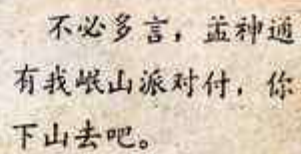 不必多言，孟神通
有我岷山派对付，你
下山去吧。